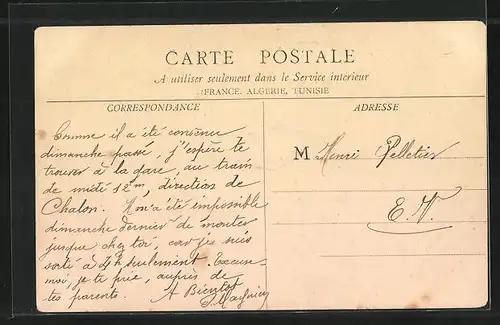 CARTE POSTALE
A utiliser seulement dans le Service intérieur
(FRANCE, ALGERIE, TUNISIE
CORRESPONDANCE
Comme il a été convenu
dimanche passé, j'espère te
trouver à la gare, au train
de midi 12m, direction de
Chalon. Il m'a été impossible
dimanche dernier de monter
jusque chez toi, car je suis
sorti à 4h seulement. Excuse-
moi, je te prie, auprès de
tes parents. A Bientot
ADRESSE
M Henri Pelletier
E. V.